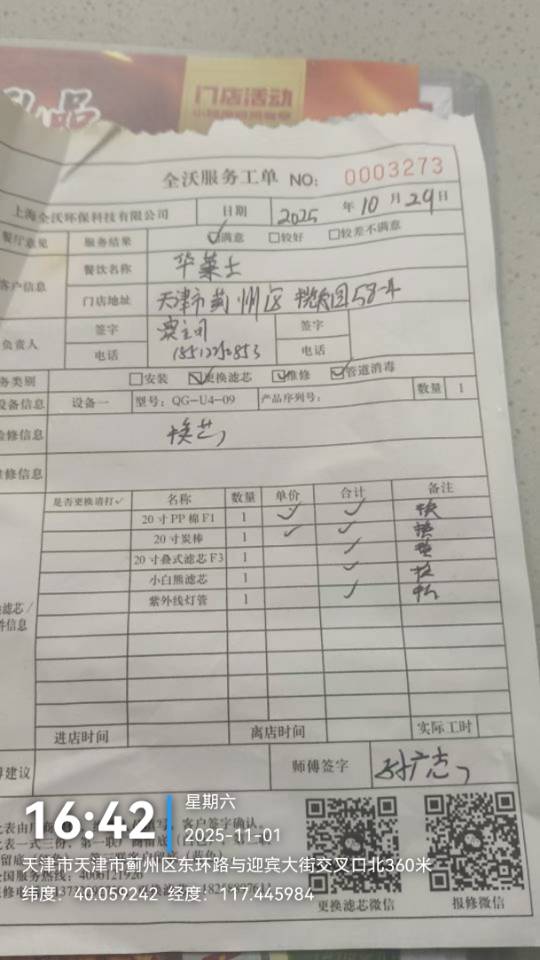 门店活动
全沃服务工单 NO: 0003273
上海全沃环保科技有限公司 日期 2025 年 10 月 29 日
餐厅意见 服务结果 ☑满意 □较好 □较差不满意
客户信息 餐饮名称 华莱士
门店地址 天津市蓟州区
负责人 签字 签字
电话 电话
务类别 □安装 ☑更换滤芯 ☑维修 ☑管道消毒
设备信息 设备一 型号: QG-U4-09 产品序列号: 数量 1
检修信息 换芯
维修信息
是否更换请打✓ 名称 数量 单价 合计 备注
20寸PP棉F1 1 ✓ ✓ 换
20寸炭棒 1 ✓ ✓ 换
20寸叠式滤芯F3 1 ✓ 换
小白熊滤芯 1 ✓ 换
紫外线灯管 1 ✓
滤芯/
件信息
进店时间 离店时间 实际工时
建议 师傅签字 孙广志
16:42 星期六
2025-11-01
客户签字确认
天津市天津市蓟州区东环路与迎宾大街交叉口北360米
国服务热线: 4006121920
纬度: 40.059242 经度: 117.445984
更换滤芯微信 报修微信